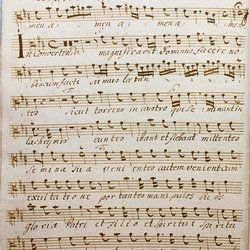 mena mena mena
In convertendo magnificavit Dominus facere no
biscum facti sumus lætan
tes sicut torrens in austro qui seminant in
lachrymis euntes ibant et flebant mittentes
semina sua venientes autem venient cum
exultatione portantes manipulos suos
gloria Patri et Filio et Spiritui Spiritu